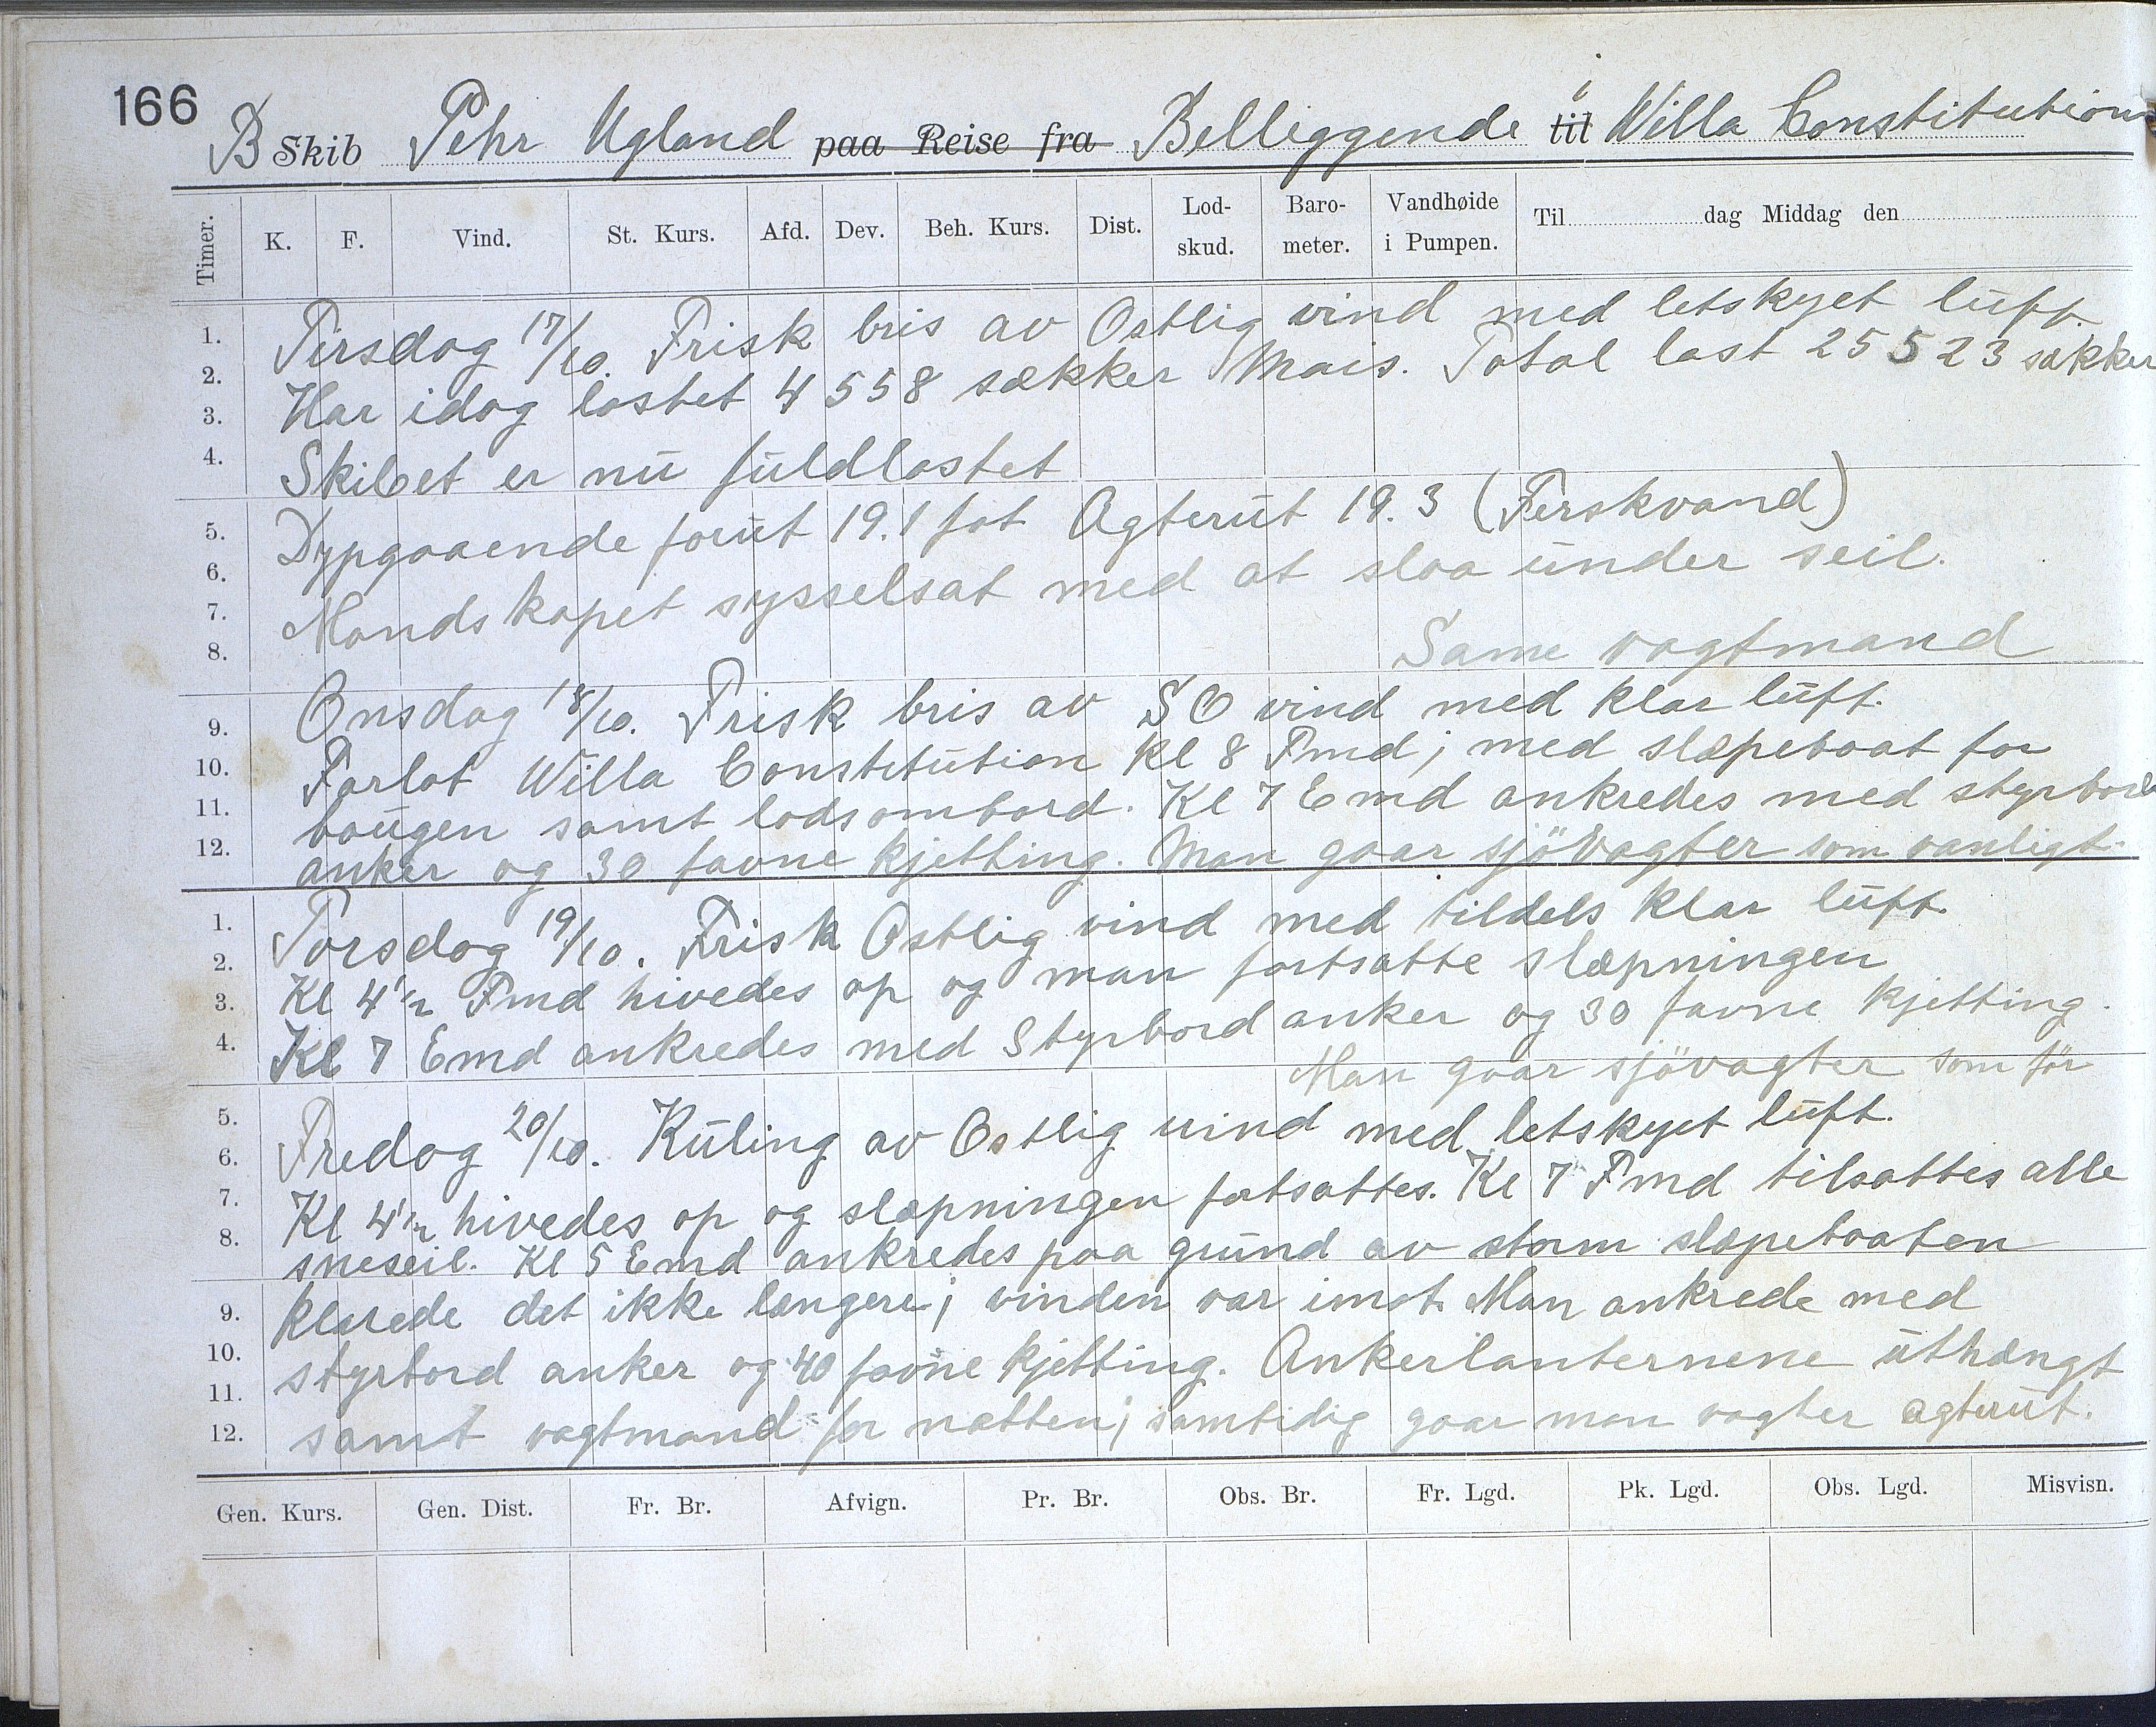 166
B Skib Pehr Ugland paa Reise fra Belliggende i til Willa Constitution
Timer. K. F. Vind. St. Kurs. Afd. Dev. Beh. Kurs. Dist. Lod-skud. Baro-meter. Vandhøide i Pumpen. Til dag Middag den
1. Tirsdag 17/10. Frisk bris av Ostlig vind med letskyet luft.
2. Har idag lastet 4558 sækker Mais. Total last 25523 sækker
3.
4. Skibet er nu fuldlastet
5. Dypgaaende forut 19.1 fot Agterut 19.3 (Ferskvand)
6.
7. Mandskapet sysselsat med at slaa under seil.
8. Same vagtmand
9. Onsdag 18/10. Frisk bris av SO vind med klar luft.
10. Forlot Willa Constitution Kl 8 Fmd; med slæpebaat for
11. bougen samt lods ombord. Kl 7 Emd ankredes med styrbord
12. anker og 30 favne kjetting. Man gaar sjövagter som vanligt.
1. Torsdag 19/10. Frisk Ostlig vind med tildels klar luft.
2.
3. Kl 4 1/2 Fmd hivedes op og man fortsatte slæpningen
4. Kl 7 Emd ankredes med Styrbord anker og 30 favne kjetting.
Man gaar sjövagter som för
5.
6. Fredag 20/10. Kuling av Ostlig vind med letskyet luft.
7. Kl 4 1/2 hivedes op og slæpningen fortsattes. Kl 7 Fmd tilsattes alle
8. sneseil. Kl 5 Emd ankredes paa grund av storm slæpebaaten
9. klarede det ikke længere; vinden var imot. Man ankrede med
10. styrbord anker og 40 favne kjetting. Ankerlanternene uthængt
11.
12. samt vagtmand for natten; samtidig gaar man vagter agterut.
Gen. Kurs. Gen. Dist. Fr. Br. Afvign. Pr. Br. Obs. Br. Fr. Lgd. Pk. Lgd. Obs. Lgd. Misvisn.